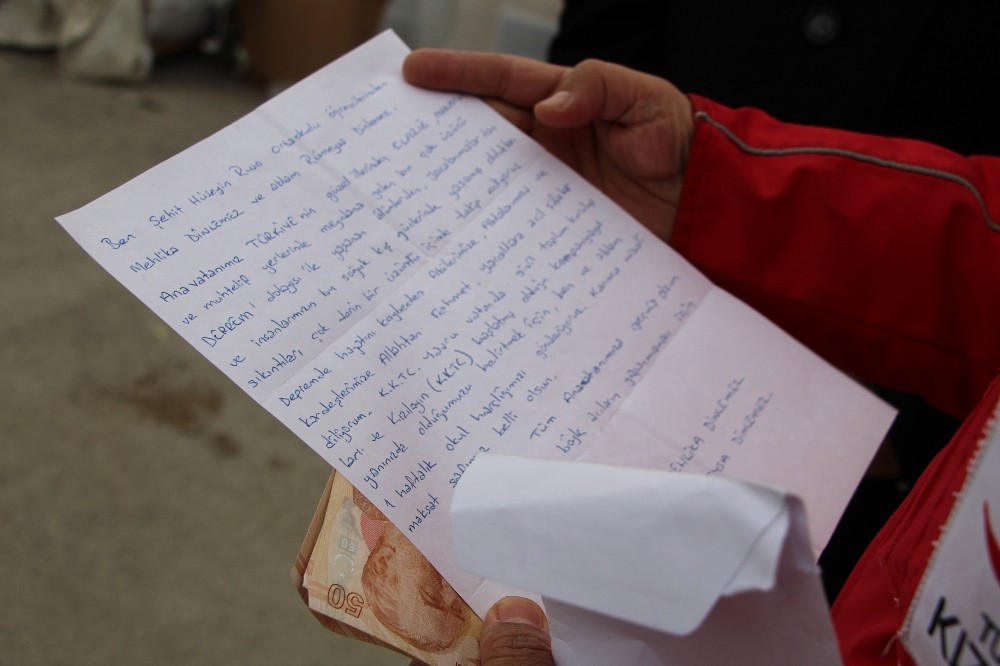 Ben Şehit Hüseyin Ruso Ortaokulu öğrencilerinden
Mehlika DİNLEMİZ ve ablam Rümeysa Dinlemiz.
Anavatanımız TÜRKİYE'nin güzel illerinden ELAZIĞ
ve muhtelif yerlerinde meydana gelen bir çok üzücü
DEPREM dolayısı ile yaşanan
ve insanlarımızın bu soğuk kış günlerinde yaşamış oldukları
sıkıntıları, çok derin bir üzüntü içinde takip ediyoruz.
Depremde hayatını kaybeden Abilerimize, Ablalarımıza ve
kardeşlerimize Allahtan Rahmet, yaralılara acil şifalar
diliyorum. K.K.T.C. Yavru vatanda sivil toplum kuruluş
ları ve Kızılayın (K.K.T.C) başlatmış olduğu kampanyaya
yanınızda olduğumuzu belirtmek için, ben ve ablam
1 haftalık okul harçlığımızı gönderiyoruz.
maksat safımız belli olsun.
Tüm Anavatanımıza geçmiş olsun
MEHLİKA DİNLEMİZ
DİNLEMİZ.
50
KIZ